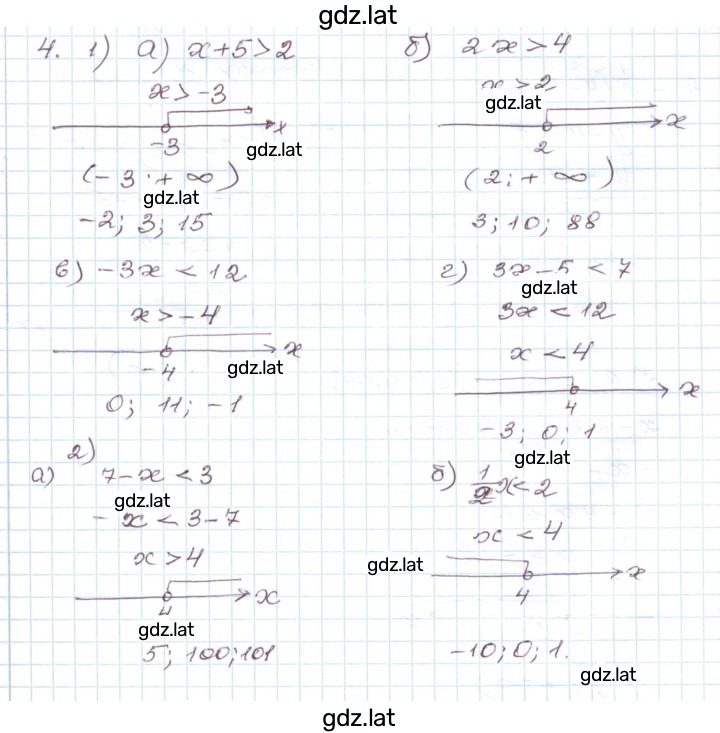 gdz.lat
4. 1) а) x+5>2
x>-3
x
-3
gdz.lat
(-3·+∞)
gdz.lat
-2; 3; 15
б) 2x>4
x>2
gdz.lat
x
2
(2;+∞)
3; 10; 88
в) -3x<12
x>-4
x
-4
gdz.lat
0; 11; -1
г) 3x-5<7
gdz.lat
3x<12
x<4
x
4
-3; 0; 1
gdz.lat
2)
а) 7-x<3
gdz.lat
-x<3-7
x>4
x
4
gdz.lat
5; 100; 101
б) 1/2 x<2
x<4
gdz.lat
x
4
-10; 0; 1.
gdz.lat
gdz.lat